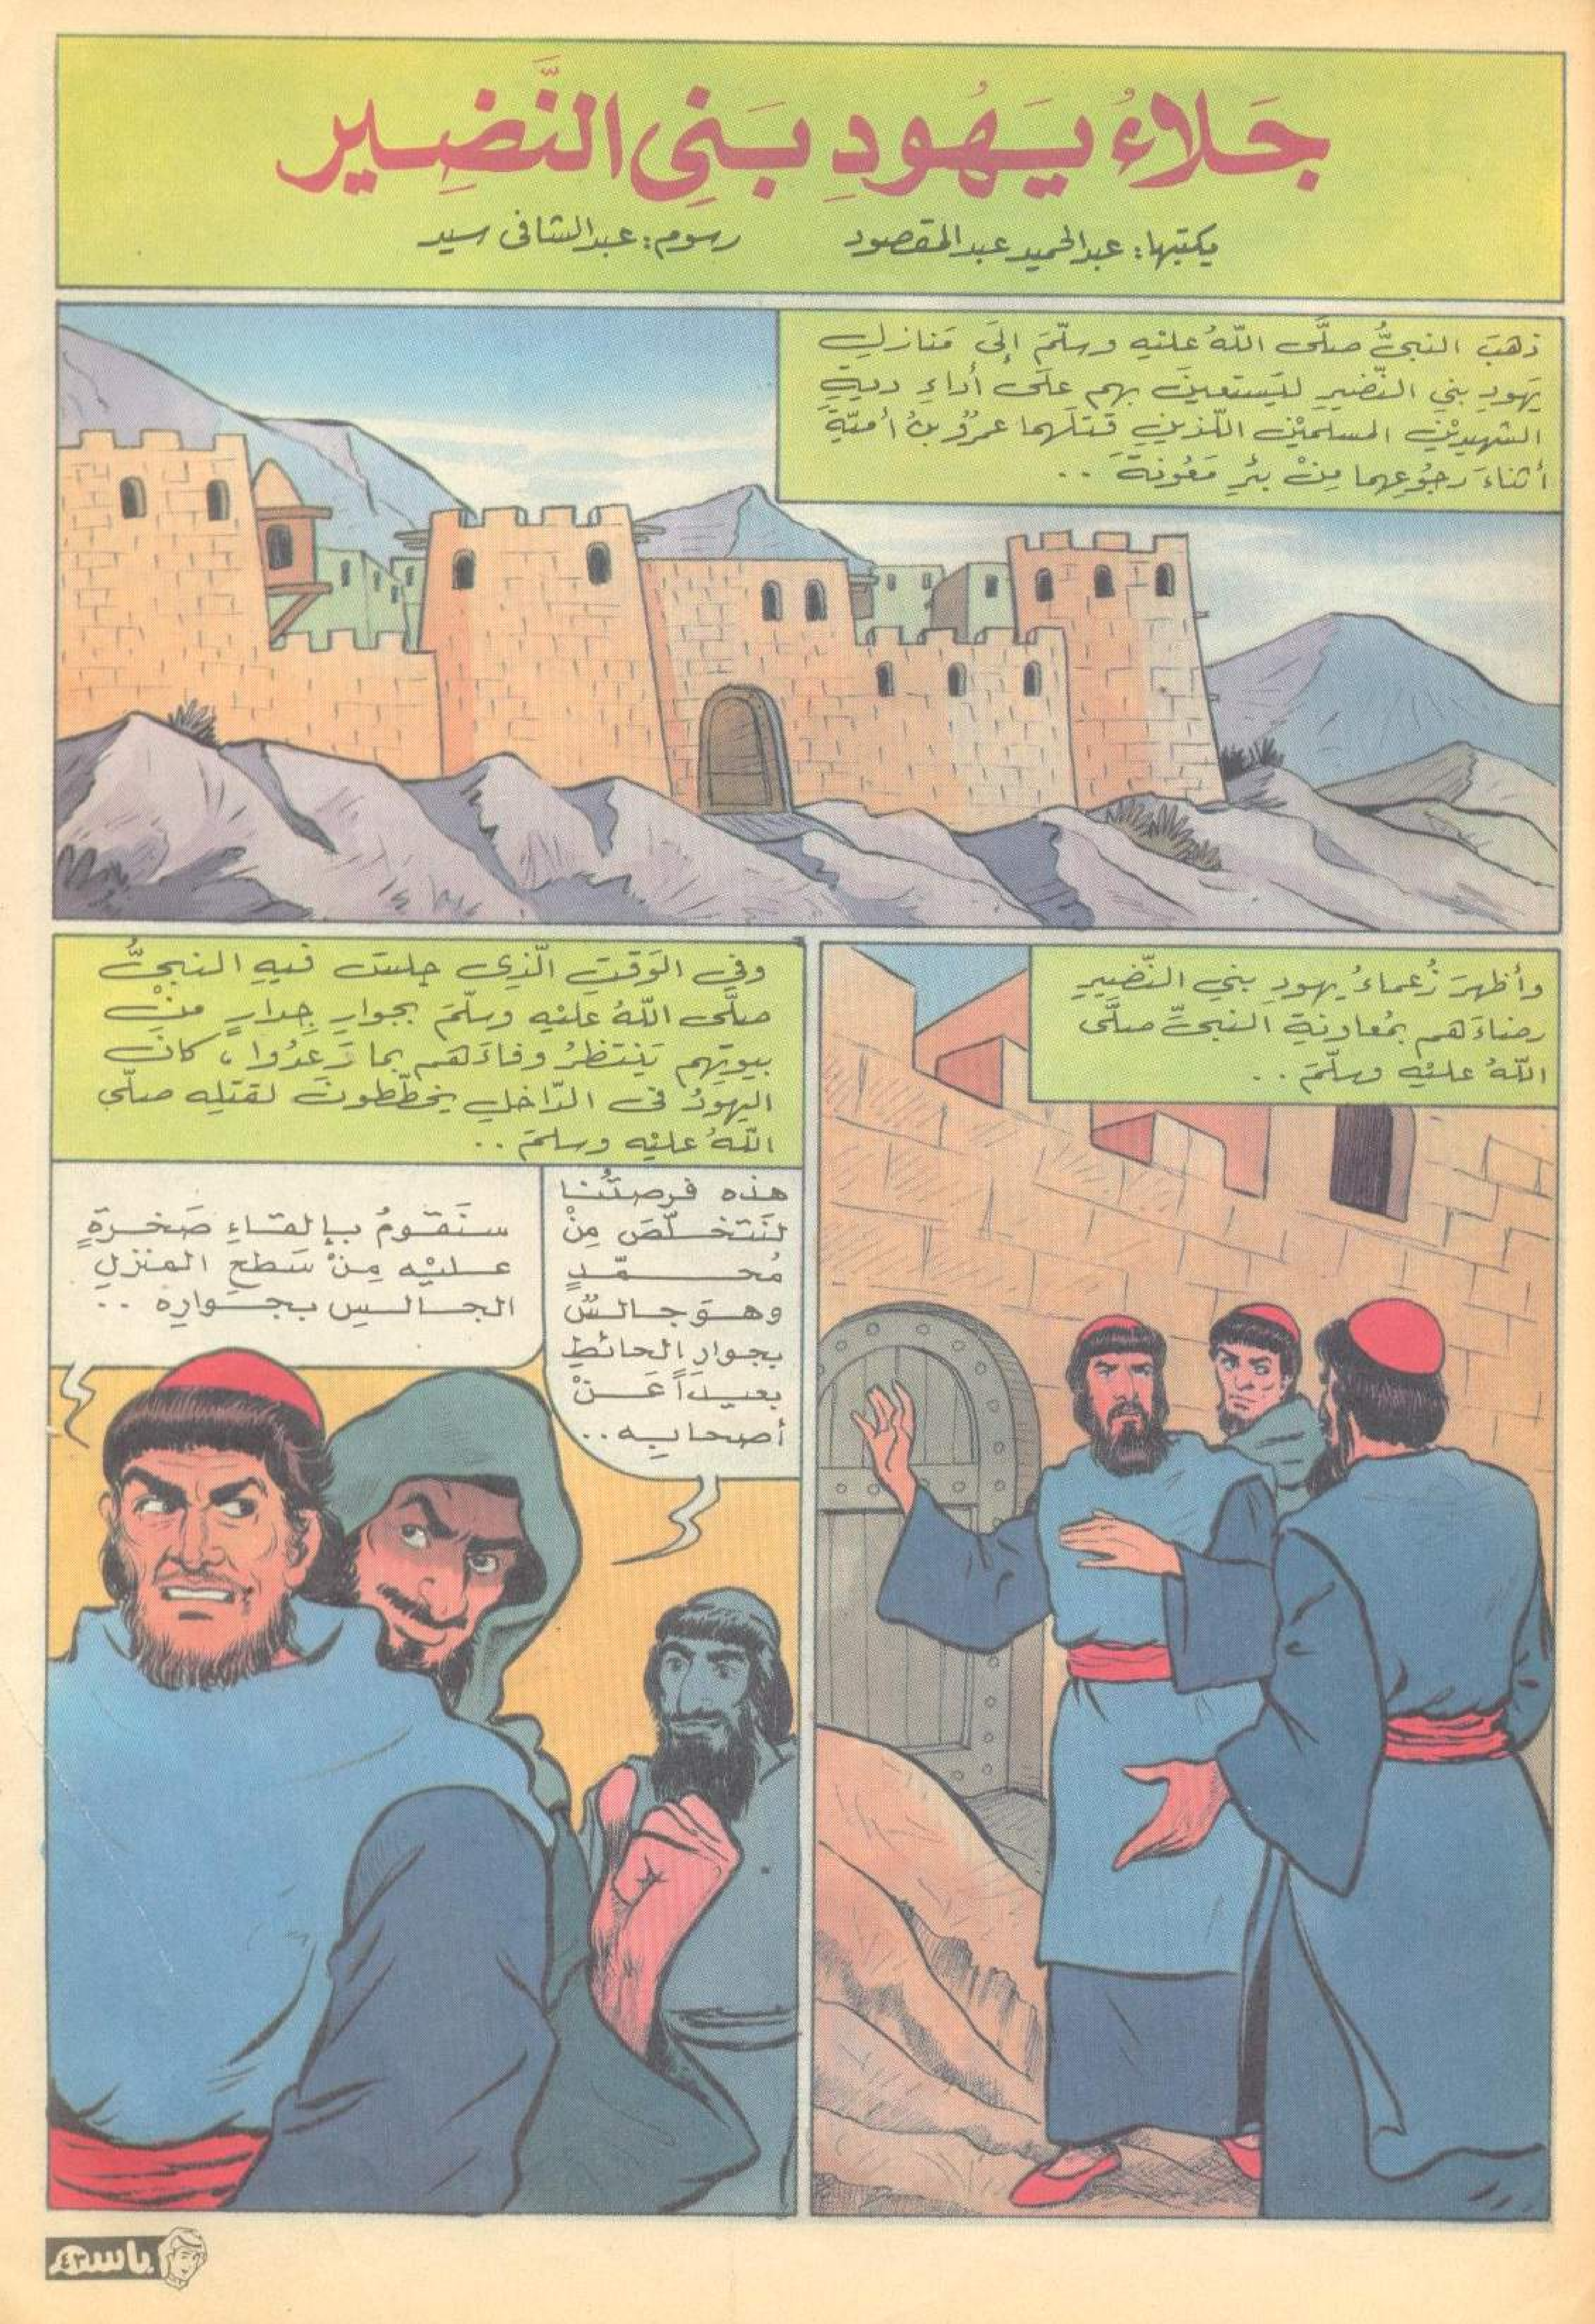 جَلاءُ يَهُودِ بَنِي النَّضِير
يكتبها: عبدالحميد عبدالمقصود
رسوم: عبدالشافى سيد
ذهبَ النبىُّ صلَّى اللّهُ عليْهِ وسلّمَ إلَى مَنازلِ
يَهودِ بنِي النَّضيرِ ليَستعينَ بهم علَى أداءِ ديةِ
الشهيديْنِ المسلميْنِ اللّذينِ قتلَهما عمرُو بنُ أميّةَ
أثناءَ رجُوعِهما مِنْ بئرِ مَعُونةَ ..
وأظهرَ زُعماءُ يهودِ بنِي النَّضيرِ
رضاءَهم بمُعاونةِ النبىِّ صلَّى
اللّهُ عليْهِ وسلَّمَ ..
وفي الوَقتِ الَّذِى جلسَ فيهِ النبىُّ
صلَّى اللّهُ عليْهِ وسلّمَ بجوارِ جِدارٍ منْ
بيوتِهم يَنتظرُ وفاءَهم بما وَعدُوا ، كانَ
اليهودُ فى الدّاخلِ يخطّطونَ لقتلِه صلَّى
اللّهُ عليْهِ وسلمَ ..
هذه فرصتُنا
لنَتخلَّصَ مِنْ
مُحمّدٍ
وهوَ جالسٌ
بجوارِ الحائطِ
بعيداً عَنْ
أصحابِه ..
سنَقومُ بإلقاءِ صَخرةٍ
عليْه مِنْ سَطحِ المنزلِ
الجالسِ بجَوارِه ..
باسم
٤٣